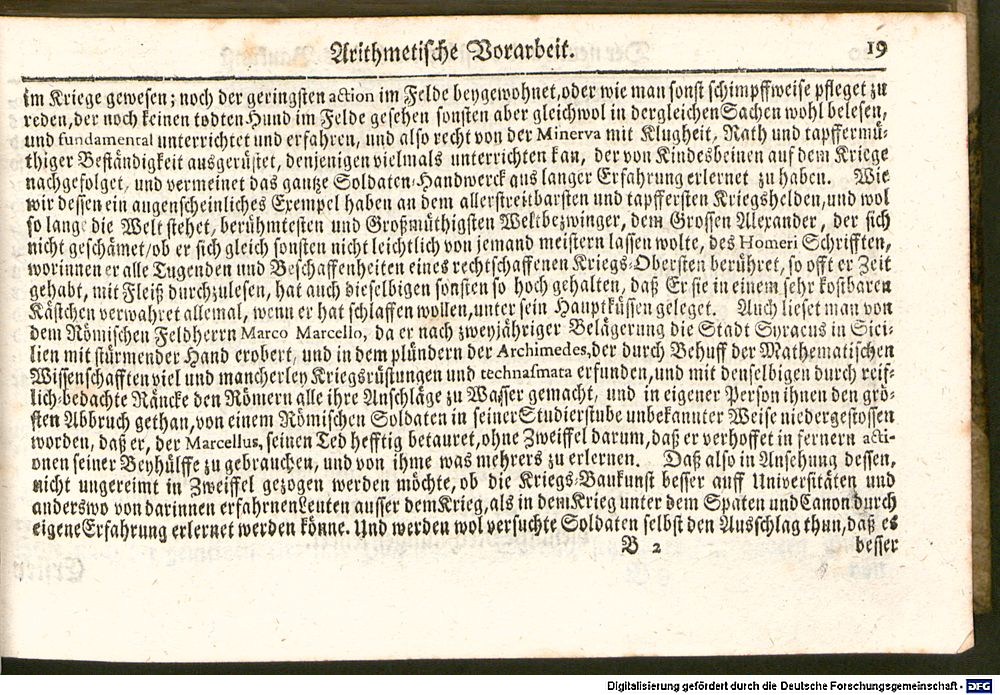 Arithmetische Vorarbeit. 19
im Kriege gewesen; noch der geringsten action im Felde beygewohnet, oder wie man sonst schimpffweise pfleget zu
reden, der noch keinen todten Hund im Felde gesehen sonsten aber gleichwol in dergleichen Sachen wohl belesen,
und fundamental unterrichtet und erfahren, und also recht von der Minerva mit Klugheit, Rath und tapffermü-
thiger Beständigkeit ausgerüstet, denjenigen vielmals unterrichten kan, der von Kindesbeinen auf dem Kriege
nachgefolget, und vermeinet das gantze Soldaten-Handwerck aus langer Erfahrung erlernet zu haben. Wie
wir dessen ein augenscheinliches Exempel haben an dem allerstreitbarsten und tapffersten Kriegshelden, und wol
so lange die Welt stehet, berühmtesten und Großmüthigsten Weltbezwinger, dem Grossen Alexander, der sich
nicht geschämet/ ob er sich gleich sonsten nicht leichtlich von jemand meistern lassen wolte, des Homeri Schrifften,
worinnen er alle Tugenden und Beschaffenheiten eines rechtschaffenen Kriegs-Obersten berühret, so offt er Zeit
gehabt, mit Fleiß durchzulesen, hat auch dieselbigen sonsten so hoch gehalten, daß Er sie in einem sehr kostbaren
Kästchen verwahret allemal, wenn er hat schlaffen wollen, unter sein Hauptküssen geleget. Auch lieset man von
dem Römischen Feldherrn Marco Marcello, da er nach zweyjähriger Belägerung die Stadt Syracus in Sici-
lien mit stürmender Hand erobert, und in dem plündern der Archimedes, der durch Behuff der Mathematischen
Wissenschafften viel und mancherley Kriegsrüstungen und technasmata erfunden, und mit denselbigen durch reif-
lich-bedachte Räncke den Römern alle ihre Anschläge zu Wasser gemacht, und in eigener Person ihnen den grö-
sten Abbruch gethan, von einem Römischen Soldaten in seiner Studierstube unbekannter Weise niedergestossen
worden, daß er, der Marcellus, seinen Tod hefftig betauret, ohne Zweiffel darum, daß er verhoffet in fernern acti-
onen seiner Beyhülffe zu gebrauchen, und von ihme was mehrers zu erlernen. Daß also in Ansehung dessen,
nicht ungereimt in Zweiffel gezogen werden möchte, ob die Kriegs-Baukunst besser auff Universitäten und
anderswo von darinnen erfahrnen Leuten ausser dem Krieg, als in dem Krieg unter dem Spaten und Canon durch
eigene Erfahrung erlernet werden könne. Und werden wol versuchte Soldaten selbst den Ausschlag thun, daß es
B 2 besser
Digitalisierung gefördert durch die Deutsche Forschungsgemeinschaft - DFG